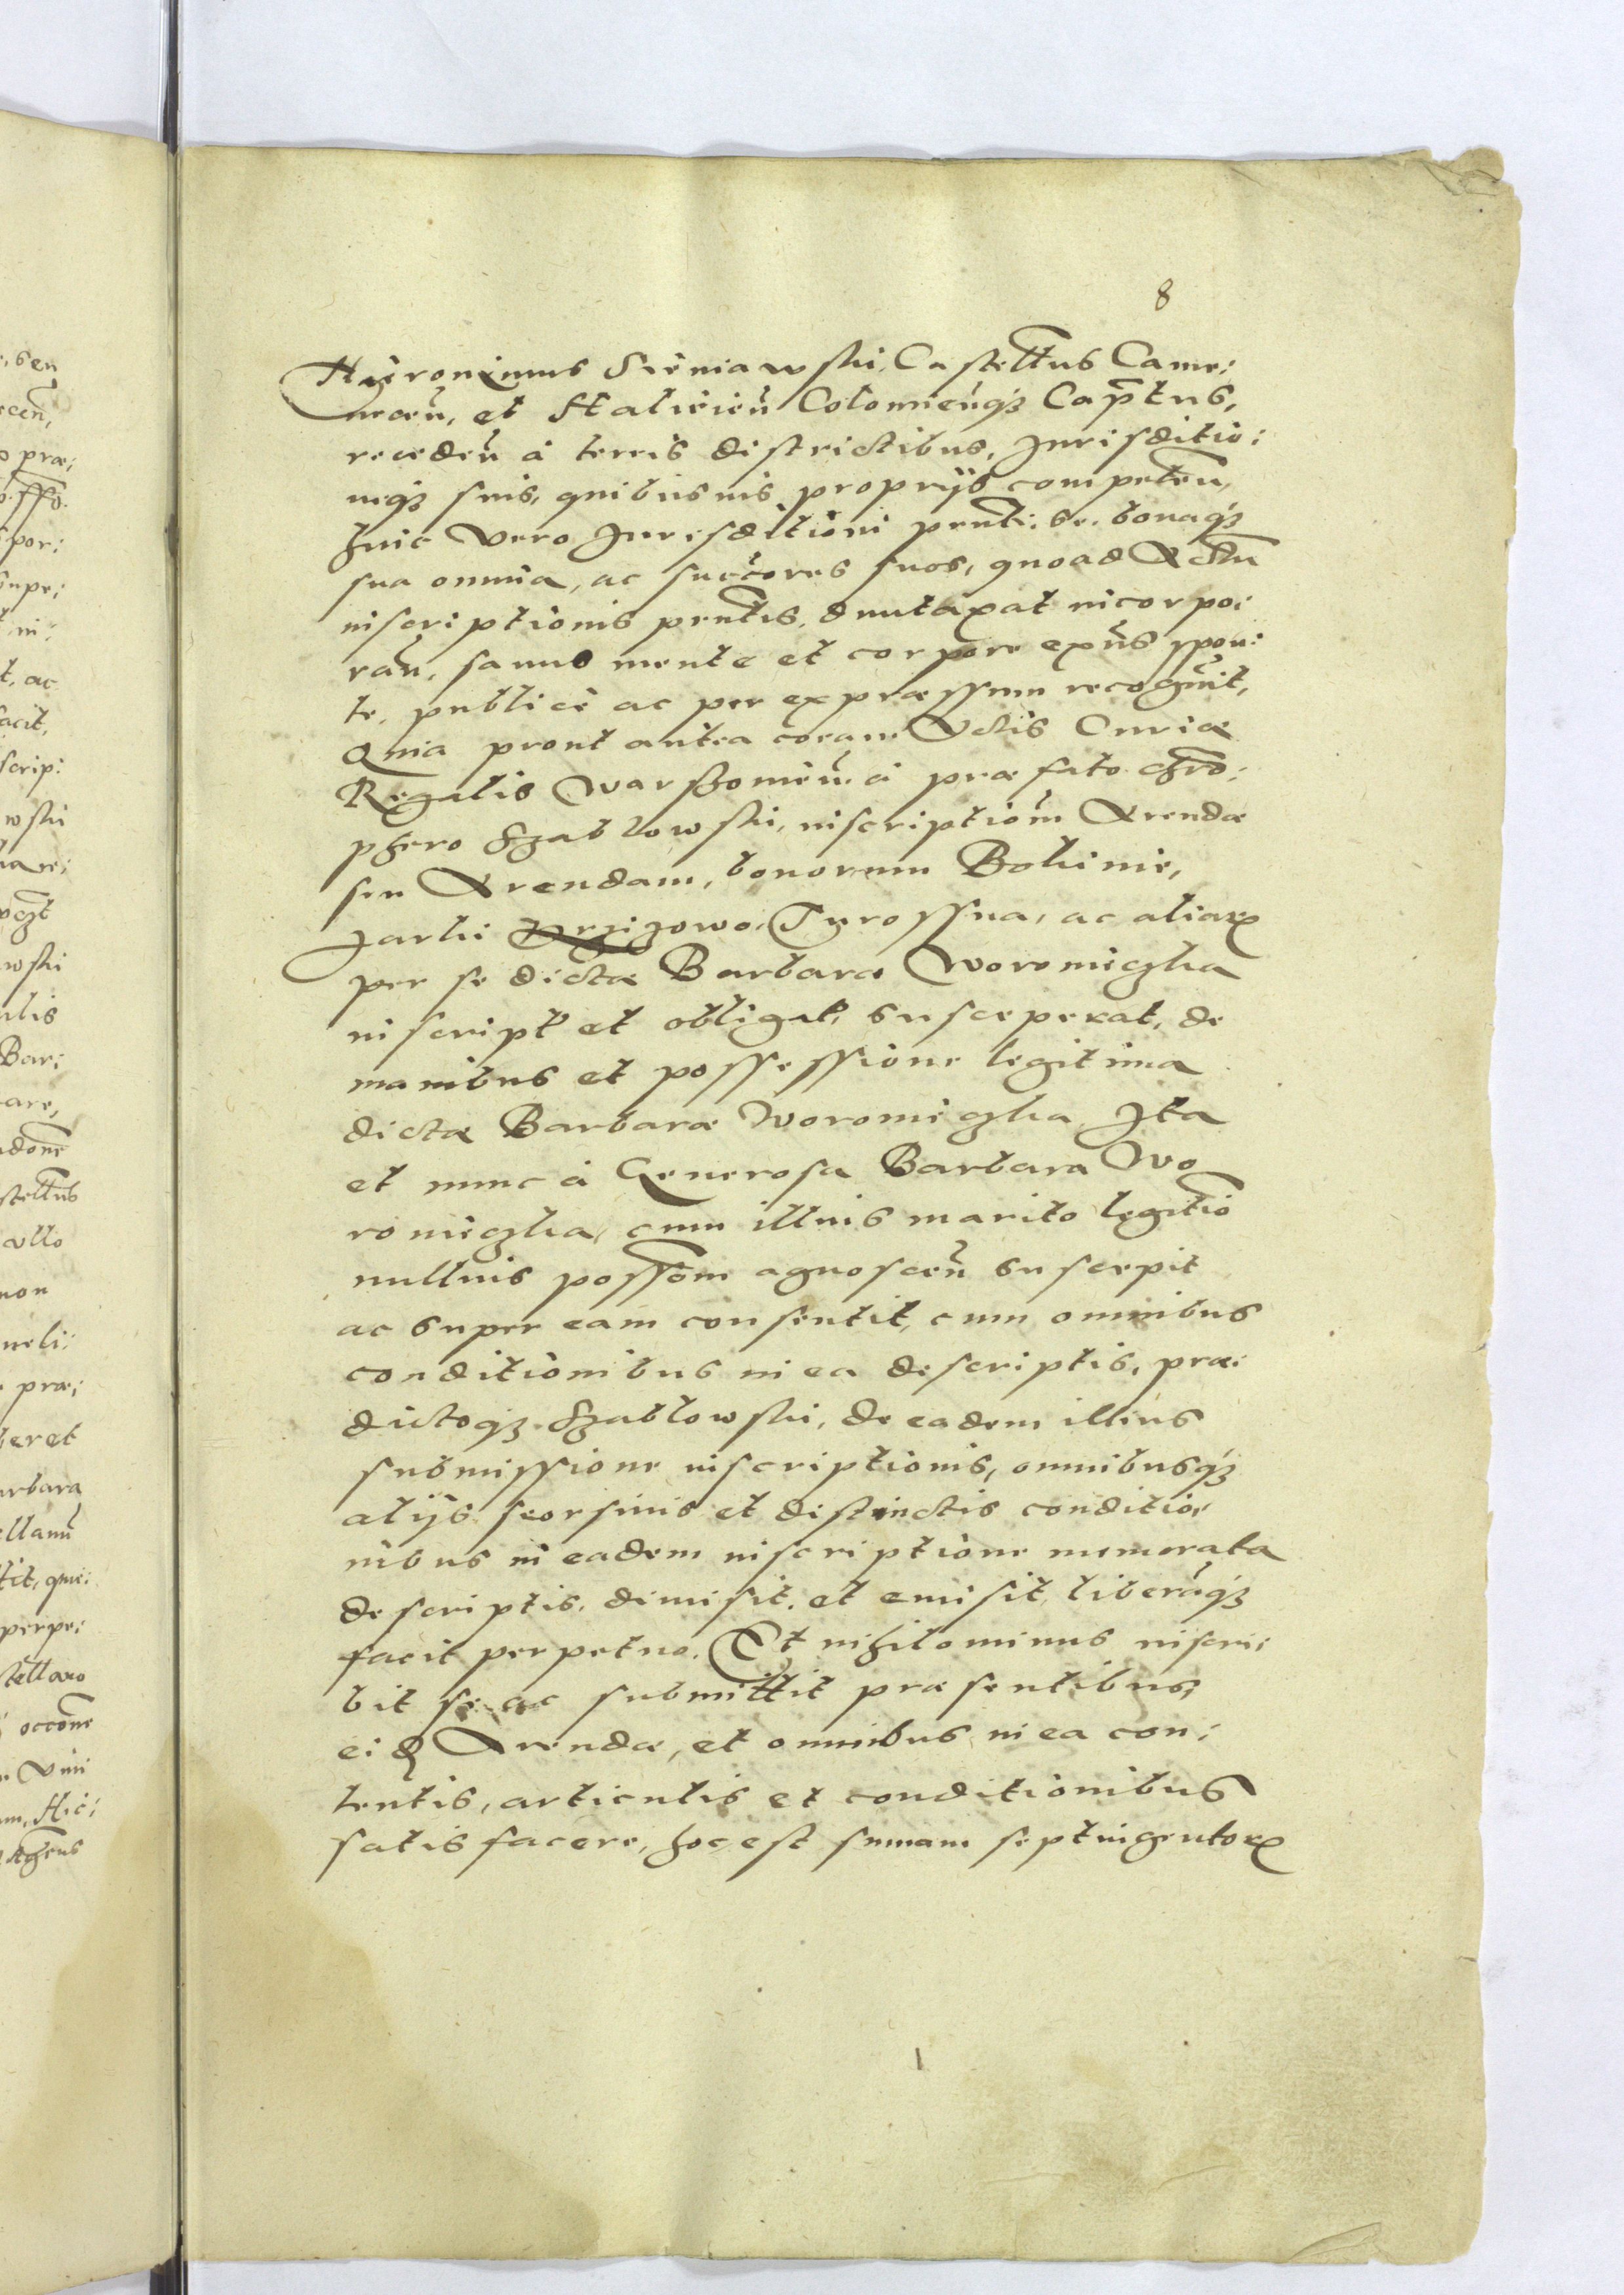 8
Hieronimus Sieniawski, Castell̃us Came:
necen̄, et Halicien̄ Colomien̄q3 Cap̃tus,
receden̄ à terris districtibus, Jurisditio:
neq3 suis, quibusuis proprijs competen̄,
huic vero Jurisditioni pn̄ti, se. bonaq3
sua omnia, ac succ̄ores suos, quoad Actū
inscriptionis pn̄tis, duntaxat incorpo:
ran̄, sanus mente et corpore exn̄s spon:
te, publicè ac per expraessum recogn̄it,
Quia prout antea coram Actis Curiæ
Regalis Warschouien̄. à præfato Chr̄o:
phero Szablowski, inscriptiōm Arendæ
seu Arendam, bonorum Bolinie,
Jarki Turossna, ac aliarꝝ
per se dictæ Barbaræ Woromiczka
inscript et obligat, susceperat, de
manibus et possessione legitima
dictæ Barbaræ Woromiczka Ita
et nunc à Generosa Barbara Wo
romiczka, cum illius marito legit̃io
nullius poss̃om agnoscen̄ suscepit
ac super eam consentit, cum omnibus
conditionibus in ea descriptis, præ:
dictoq3 Szablowski, de eadem illius
submissione inscriptionis, omnibusq3
alijs seorsiuis et distinctis conditio:
nibus in eadem inscriptione memorata
descriptis, dimisit, et emisit, liberūq3
facit perpetuo. Et nihilominus inscri:
bit se ac submittit præsentibus,
eidꝫ Arendæ, et omnibus in ea con:
tentis, articulis et conditionibus
satisfacere, hoc est summam septingentorꝝ
, sen
præ;
por:
supe;
t, ac
facit,
scrip:
wski
wski
Bar:
are,
stell̃us
non
præ;
perpe:
occōne